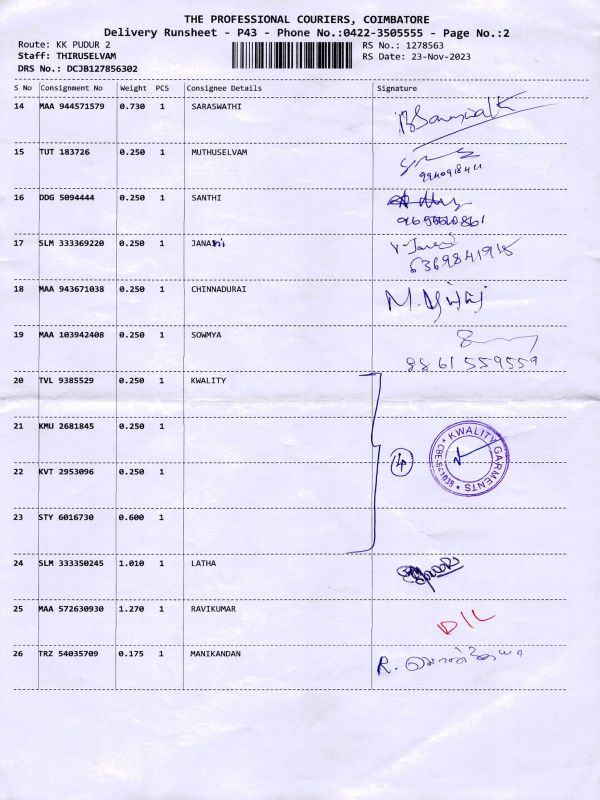 THE PROFESSIONAL COURIERS, COIMBATORE
Delivery Runsheet - P43 - Phone No.:0422-3505555 - Page No.:2
Route: KK PUDUR 2 RS No.: 1278563
Staff: THIRUSELVAM RS Date: 23-Nov-2023
DRS No.: DCJB127856302
S No Consignment No Weight PCS Consignee Details Signature
14 MAA 944571579 0.730 1 SARASWATHI
15 TUT 183726 0.250 1 MUTHUSELVAM
16 DDG 5094444 0.250 1 SANTHI
17 SLM 333369220 0.250 1 JANANi
6369841915
18 MAA 943671038 0.250 1 CHINNADURAI
19 MAA 103942408 0.250 1 SOWMYA
8861559559
20 TVL 9385529 0.250 1 KWALITY
21 KMU 2681845 0.250 1
KWALITY GARMENTS
22 KVT 2953096 0.250 1
23 STY 6016730 0.600 1
24 SLM 333350245 1.010 1 LATHA
25 MAA 572630930 1.270 1 RAVIKUMAR
D/L
26 TRZ 54035709 0.175 1 MANIKANDAN